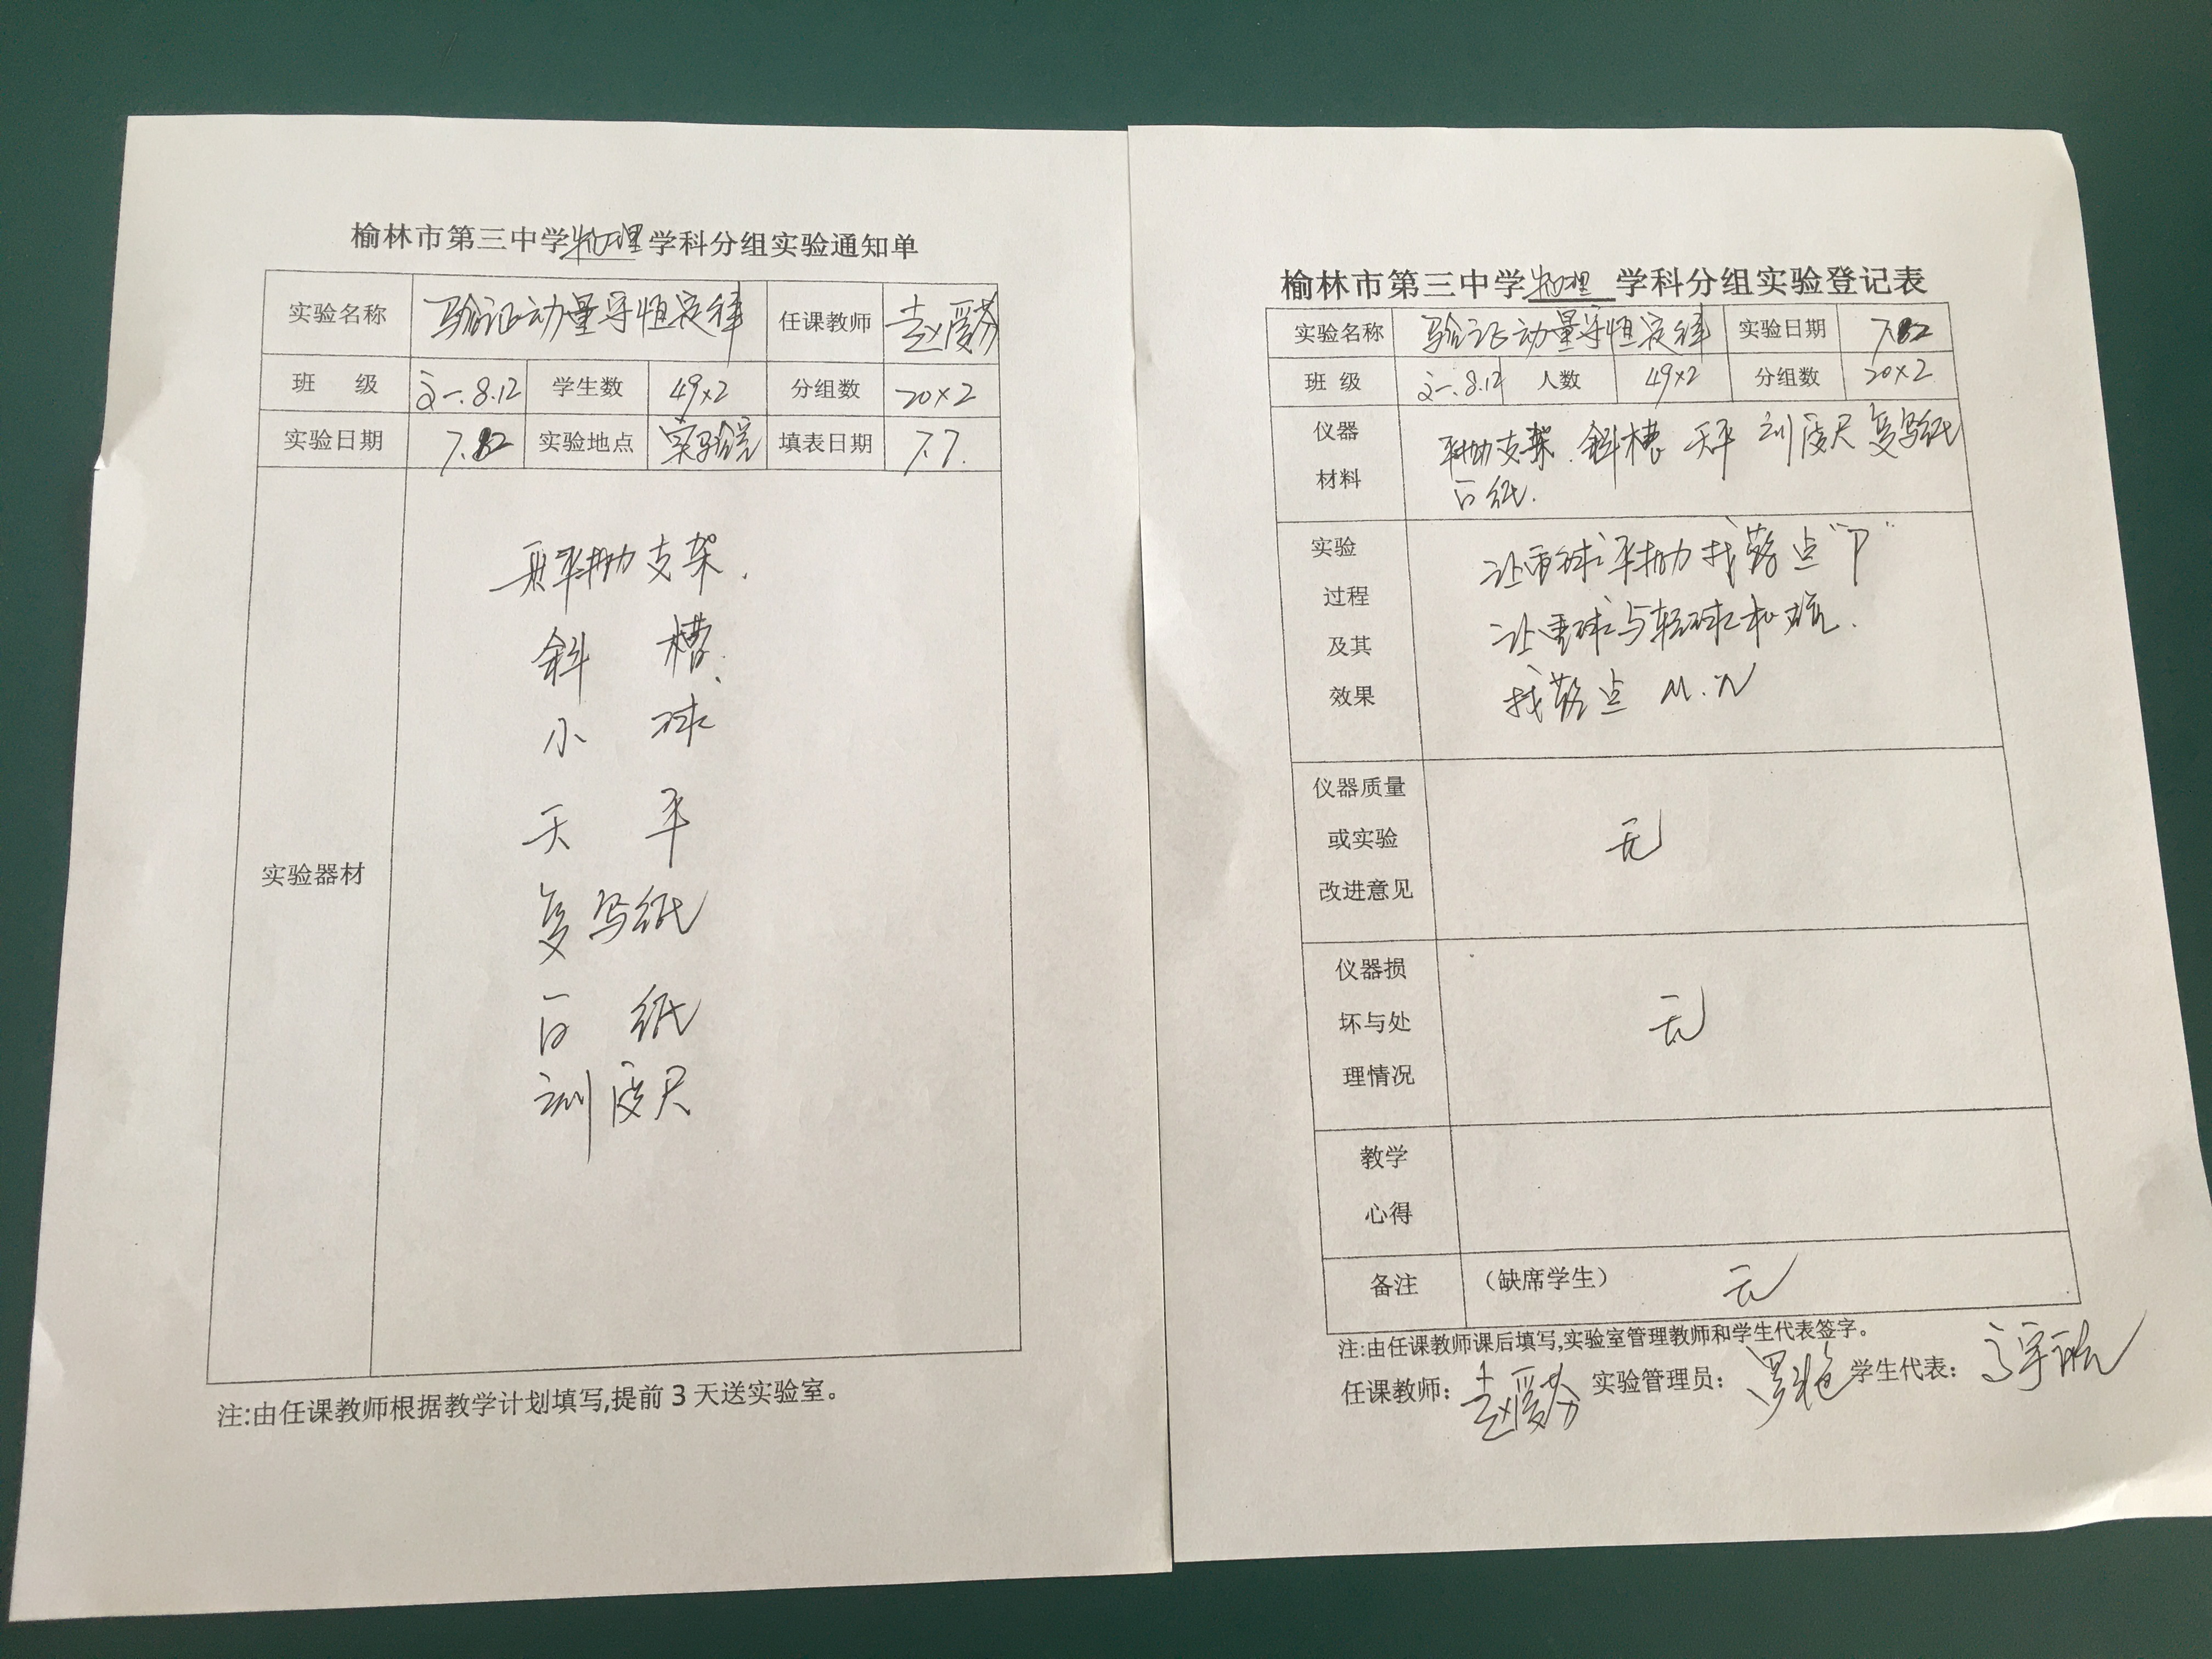 榆林市第三中学物理学科分组实验通知单
实验名称 验证动量守恒定律 任课教师 赵爱芬
班 级 高一.8.12 学生数 49×2 分组数 20×2
实验日期 实验地点 实验室 填表日期 7.7.
实验器材
平抛支架.
斜 槽.
小 球
天 平
复写纸
白 纸
刻度尺
注:由任课教师根据教学计划填写,提前3天送实验室。
榆林市第三中学物理学科分组实验登记表
实验名称 验证动量守恒定律 实验日期
班 级 高一.8.12 人数 49×2 分组数 20×2
仪器材料 平抛支架.斜槽 天平 刻度尺 复写纸
白纸.
实验过程及其效果
让重球平抛 找落点“P”
让重球与轻球相碰.
找落点 M.N
仪器质量或实验改进意见 无
仪器损坏与处理情况 无
教学心得
备注 （缺席学生） 无
注:由任课教师课后填写,实验室管理教师和学生代表签字。
任课教师: 赵爱芬 实验管理员: 学生代表: